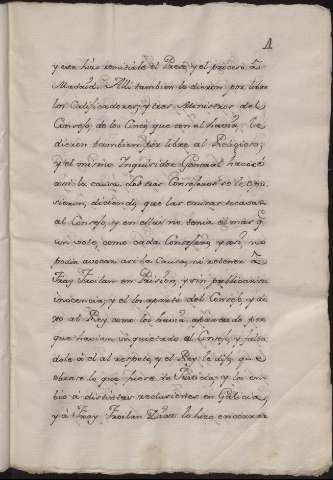 y este hizo remitirle el Preso, y el proceso à
Madrid. Alli tambien le dieron por libre
los Calificadores, y tres Ministros del
Consejo, de los Cinco que con el havia, le
dieron tambien por libre al Religioso;
y el mismo Inquisidor General
asi la causa. Los tres Consejeros se le opu-
sieron, diciendo, que las causas tocavan
al Consejo, y en ellas no tenia el mas q.e
un voto, como cada Consejero, y asi, no
podia avocar asi la Causa, ni retener à
Fray Froilan en Prision, y sin publicar su
inocencia, y el los aparto del Consejo, y di-
xo al Rey como los havia apartado por
que havian inquietado el Consejo, y falta-
dole à el al respeto, y el Rey le dijo que
obrase lo que fuese de Justicia, y los em-
bio à distintas reclusiones en Galicia,
y à Fray Froilan Diaz lo hizo encerrar